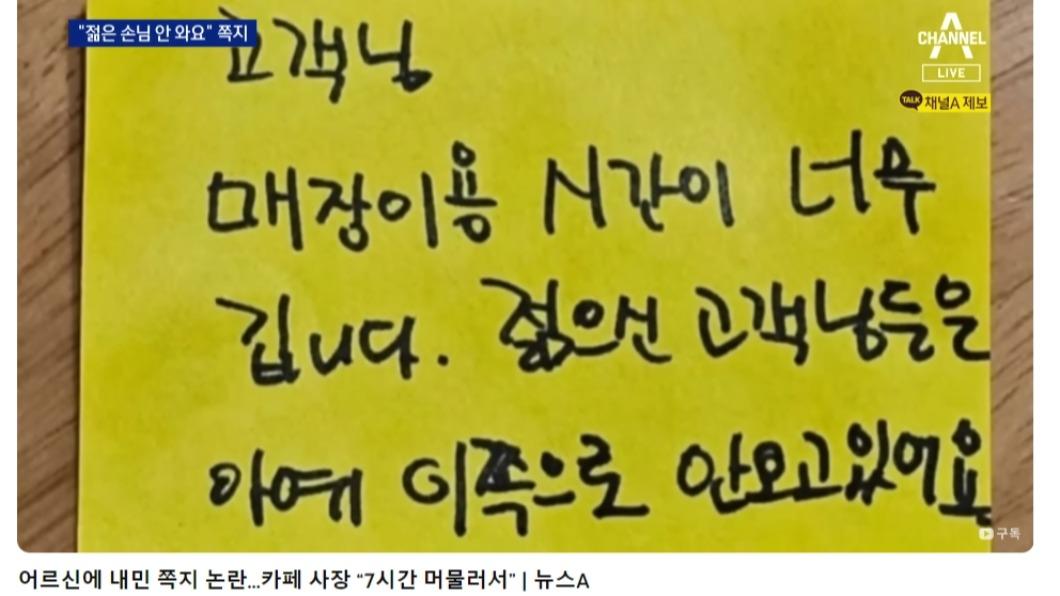 "젊은 손님 안 와요" 쪽지
CHANNEL A
LIVE
TALK 채널A 제보
고객님
매장이용 시간이 너무
깁니다. 젊으신 고객님들은
아예 이쪽으로 안오고있어요
구독
어르신에 내민 쪽지 논란...카페 사장 “7시간 머물러서” | 뉴스A